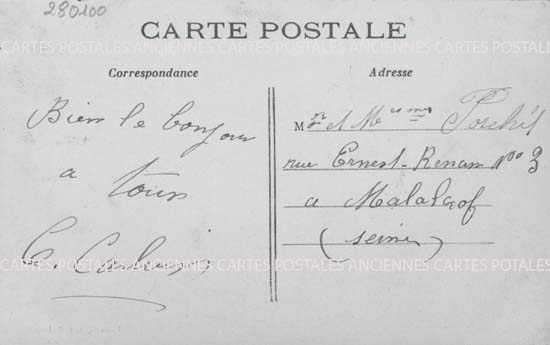 280100
CARTE POSTALE
CARTES POSTALES ANCIENNES CARTES POSTALES ANCIENNES CARTES POTALES
Correspondance
Adresse
Bien le bonjour
a tous
Mr et M
rue Ernest-Renan No 3
a Malakof
(seine)
CARTES POSTALES ANCIENNES CARTES POSTALES ANCIENNES CARTES POTALES